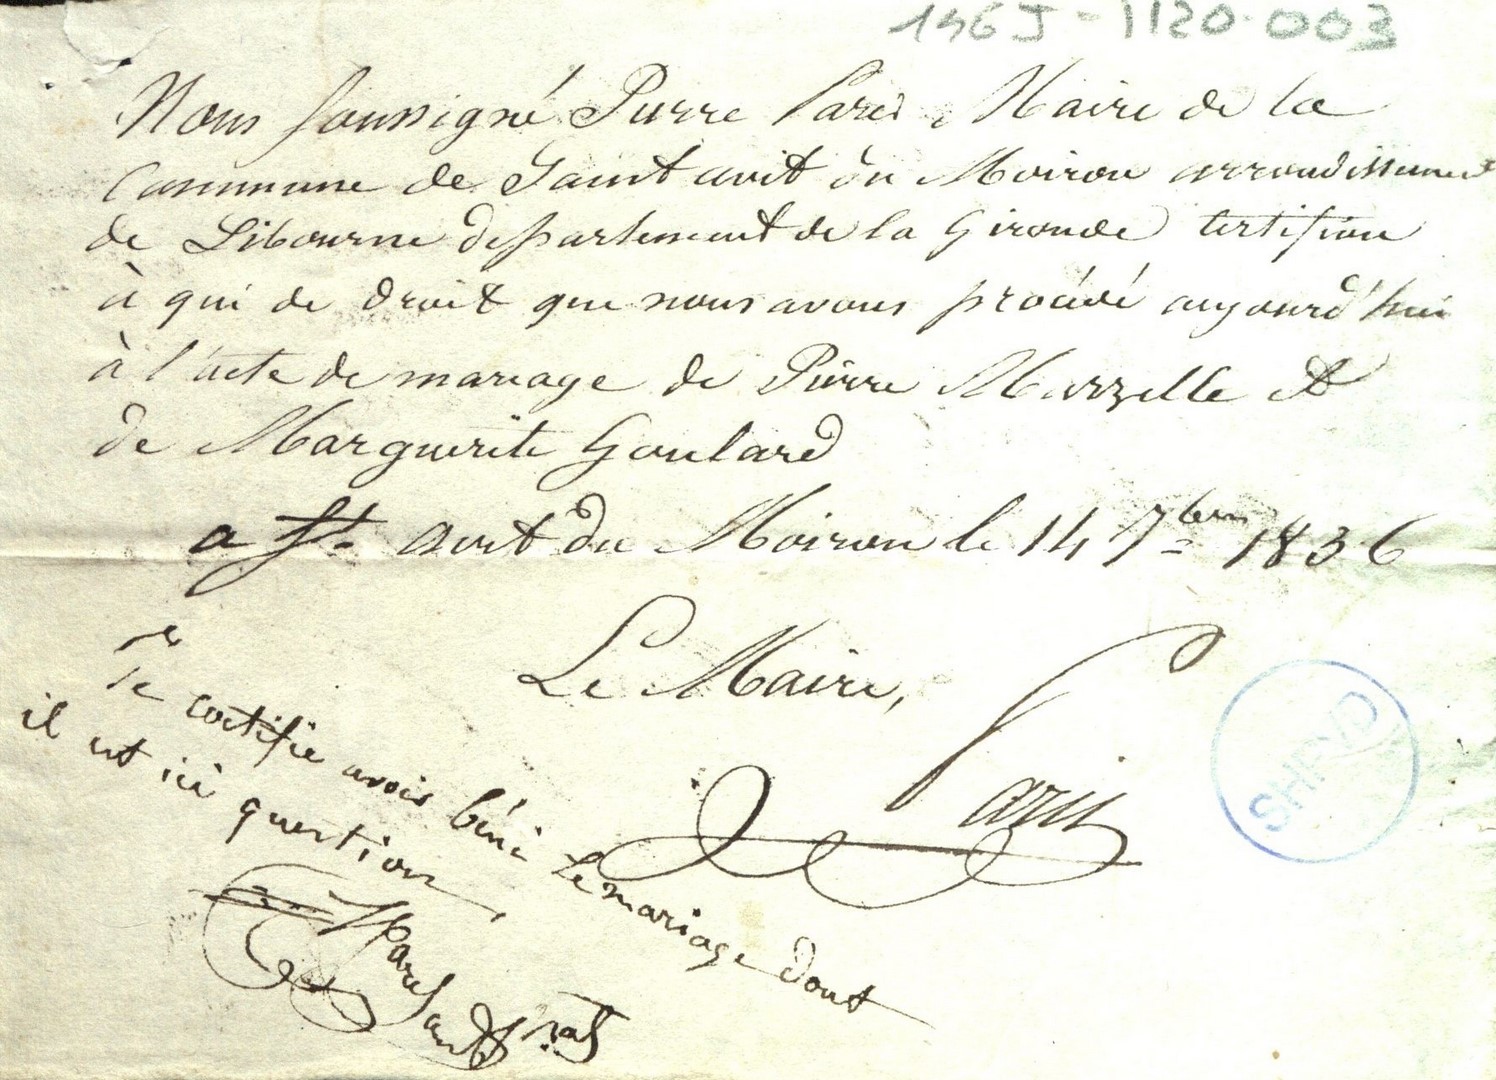 146J-1120.003
Nous soussigné Pierre Paris Maire de la
Commune de Saint avit du Moiron arrondissement
de Libourne département de la Gironde certifions
à qui de droit que nous avons procédé aujourd'hui
à l'acte de mariage de Pierre Marzelle et
de Marguerite Goulard
a St. avit du Moiron le 14 7bre 1836
Le Maire,
Paris
Je certifie avoir béni le mariage dont
il est ici question,
SHPVD